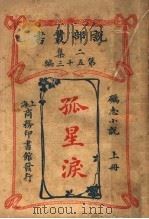 說部叢書
二集
第五十三編
勵志小說
孤星淚
上冊
上海
商務印書館發行